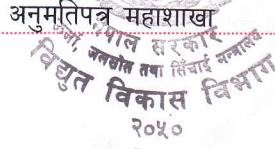 अनुमतिपत्र महाशाखा
नेपाल सरकार
ऊर्जा, जलस्रोत तथा सिँचाई मन्त्रालय
विद्युत विकास विभाग
२०५०